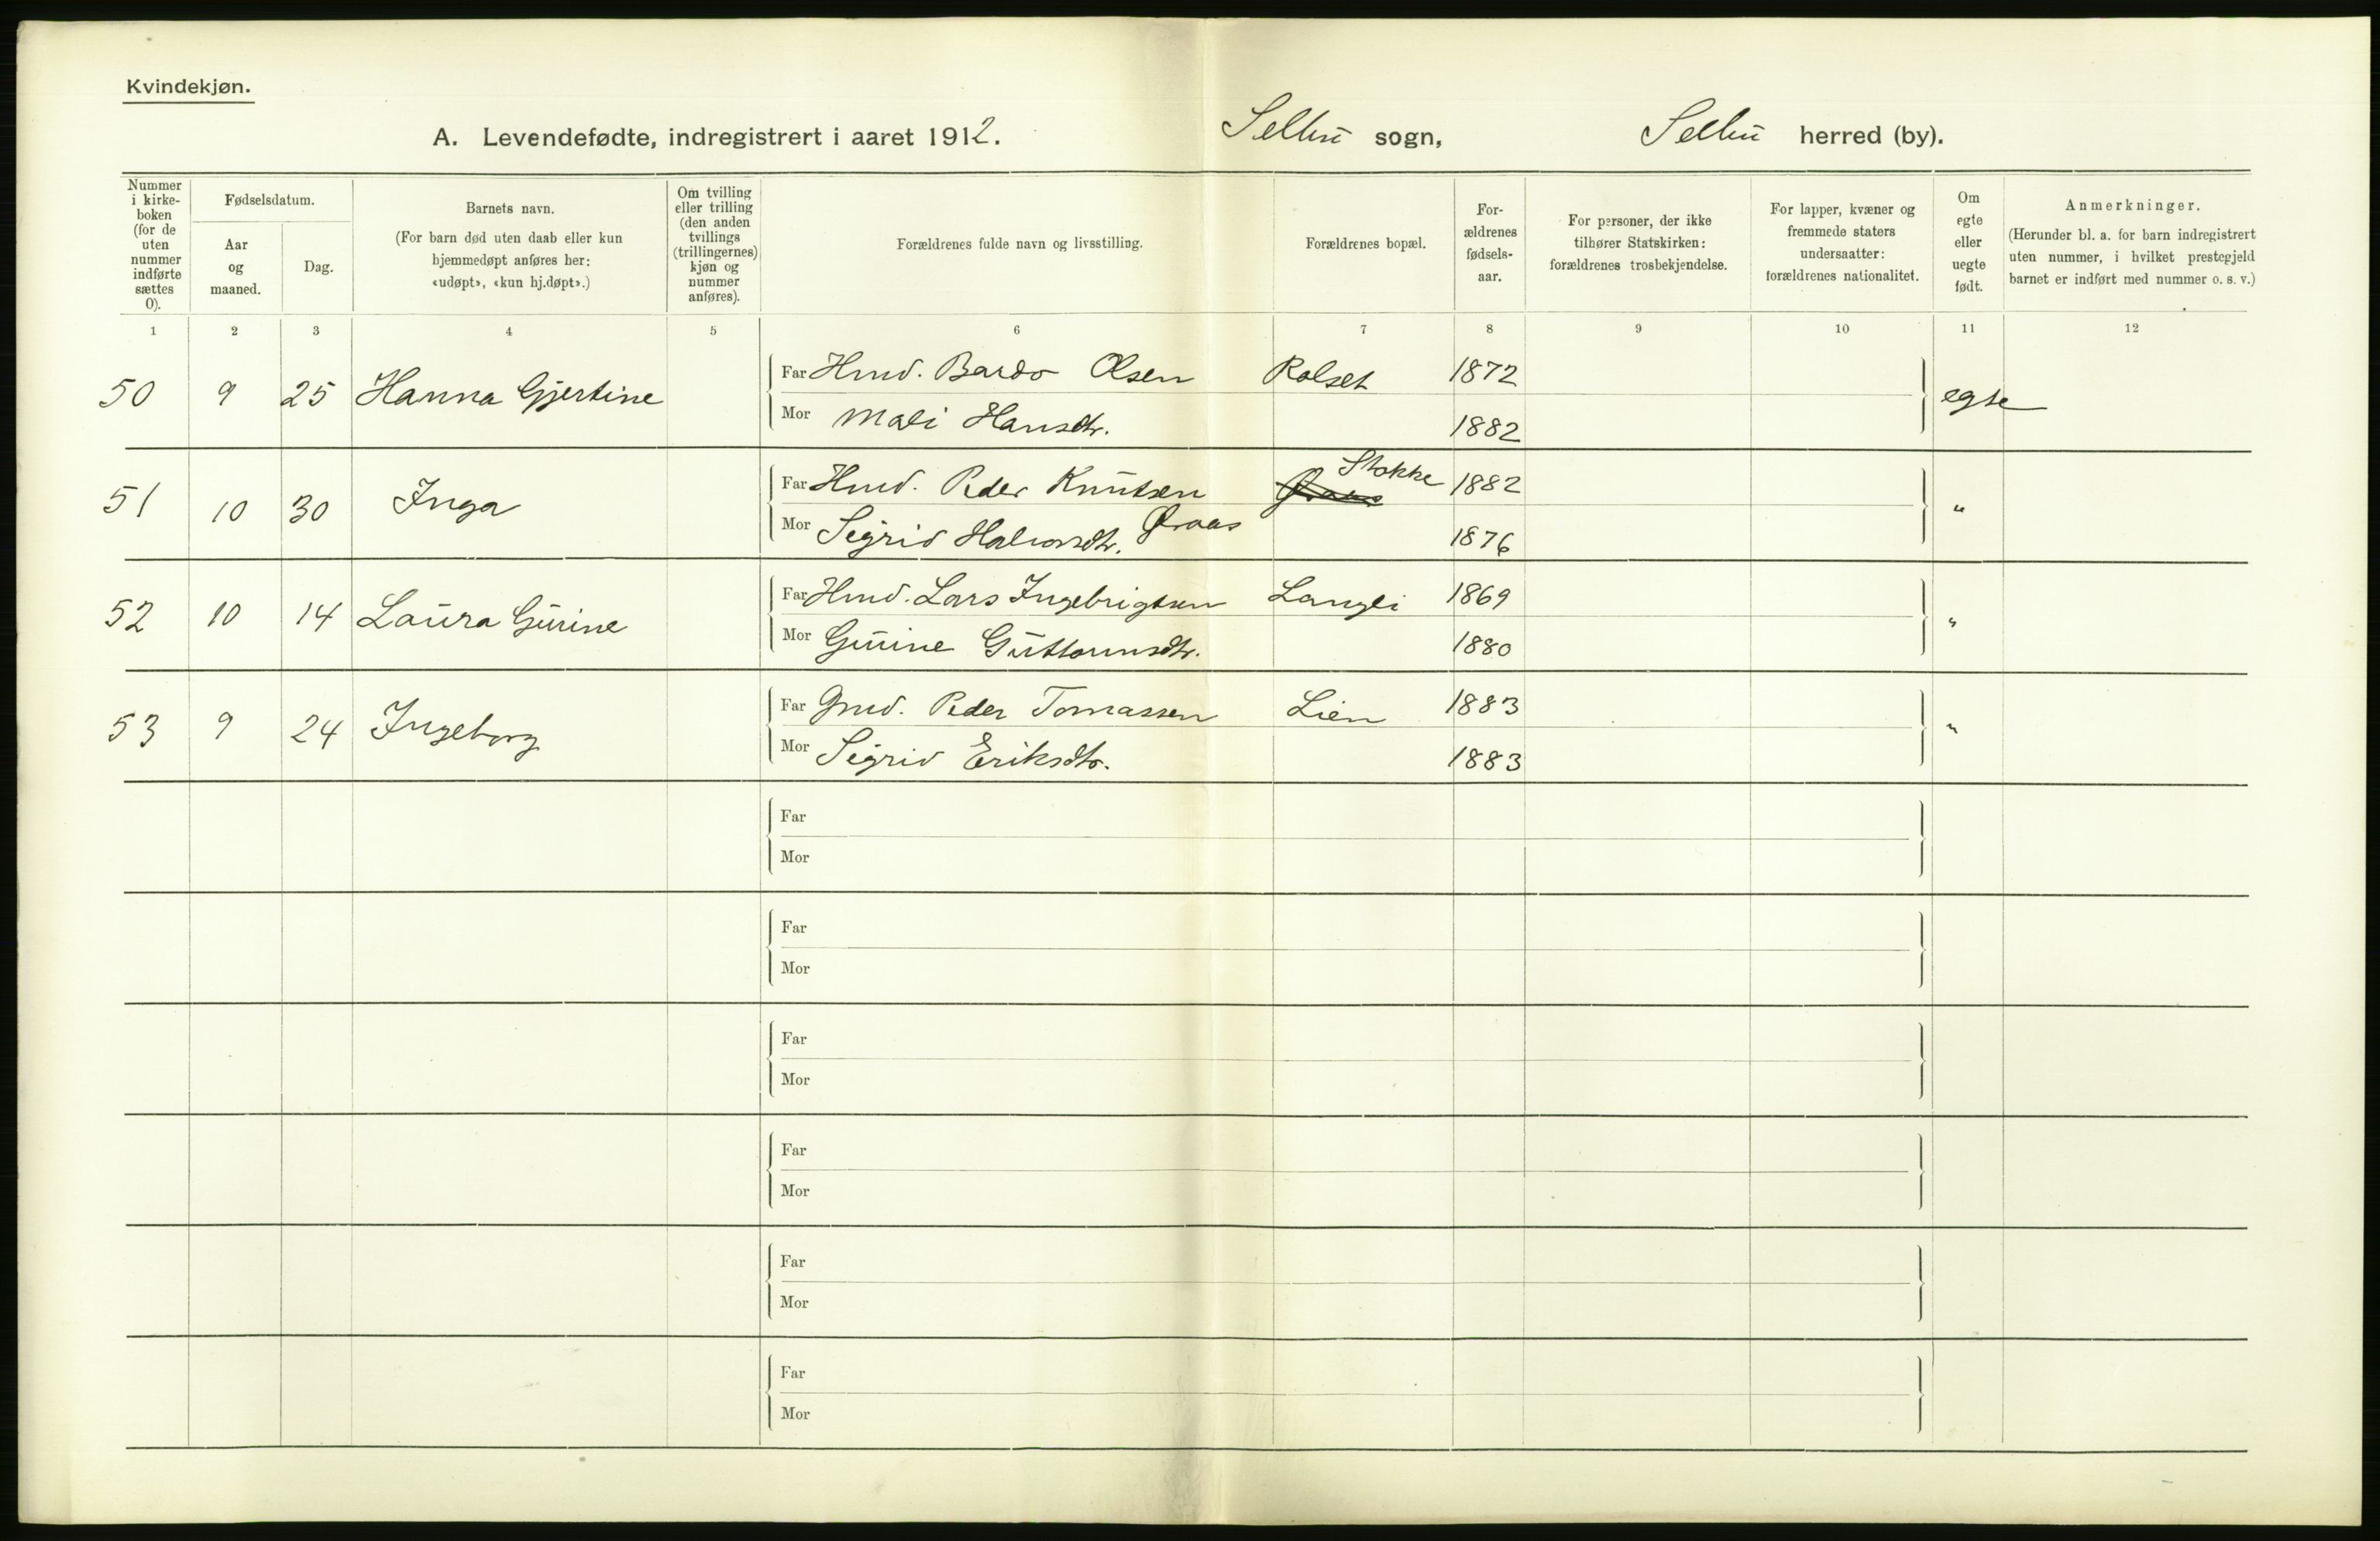 Kvindekjøn.
A. Levendefødte, indregistrert i aaret 1912. Selbu sogn, Selbu herred (by).
Nummer i kirke- boken (for de uten nummer indførte sættes 0).
Fødselsdatum.
Aar og maaned.
Dag.
Barnets navn.
(For barn død uten daab eller kun hjemmedøpt anføres her: «udøpt», «kun hj.døpt».)
Om tvilling eller trilling (den anden tvillings (trillingernes) kjøn og nummer anføres).
Forældrenes fulde navn og livsstilling.
Forældrenes bopæl.
For- ældrenes fødsels- aar.
For personer, der ikke tilhører Statskirken: forældrenes trosbekjendelse.
For lapper, kvæner og fremmede staters undersaatter: forældrenes nationalitet.
Om egte eller uegte født.
Anmerkninger.
(Herunder bl. a. for barn indregistrert uten nummer, i hvilket prestegjeld barnet er indført med nummer o. s. v.)
1 2 3 4 5 6 7 8 9 10 11 12
50 9 25 Hanna Gjertine Far Hmd. Bardo Olsen Rolset 1872 egte
Mor Mali Hansdtr. 1882
51 10 30 Inga Far Hmd. Peder Knutsen Øraas Stokke 1882 "
Mor Sigrid Halvorsdtr. Øraas 1876
52 10 14 Laura Gurine Far Hmd. Lars Ingebrigtsen Langli 1869 "
Mor Gurine Guttormsdtr. 1880
53 9 24 Ingeborg Far Gmd. Peder Tomassen Lien 1883 "
Mor Sigrid Eriksdtr. 1883
Far
Mor
Far
Mor
Far
Mor
Far
Mor
Far
Mor
Far
Mor